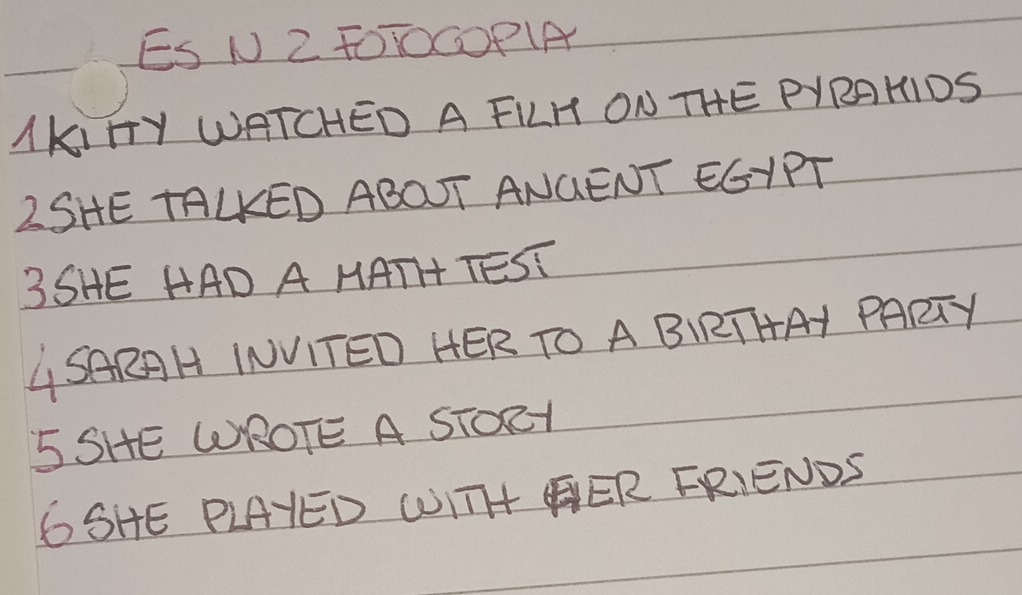 ES N 2 FOTOCOPIA
1 KITTY WATCHED A FILM ON THE PYRAMIDS
2 SHE TALKED ABOUT ANCIENT EGYPT
3 SHE HAD A MATH TEST
4 SARAH INVITED HER TO A BIRTHAY PARTY
5 SHE WROTE A STORY
6 SHE PLAYED WITH HER FRIENDS